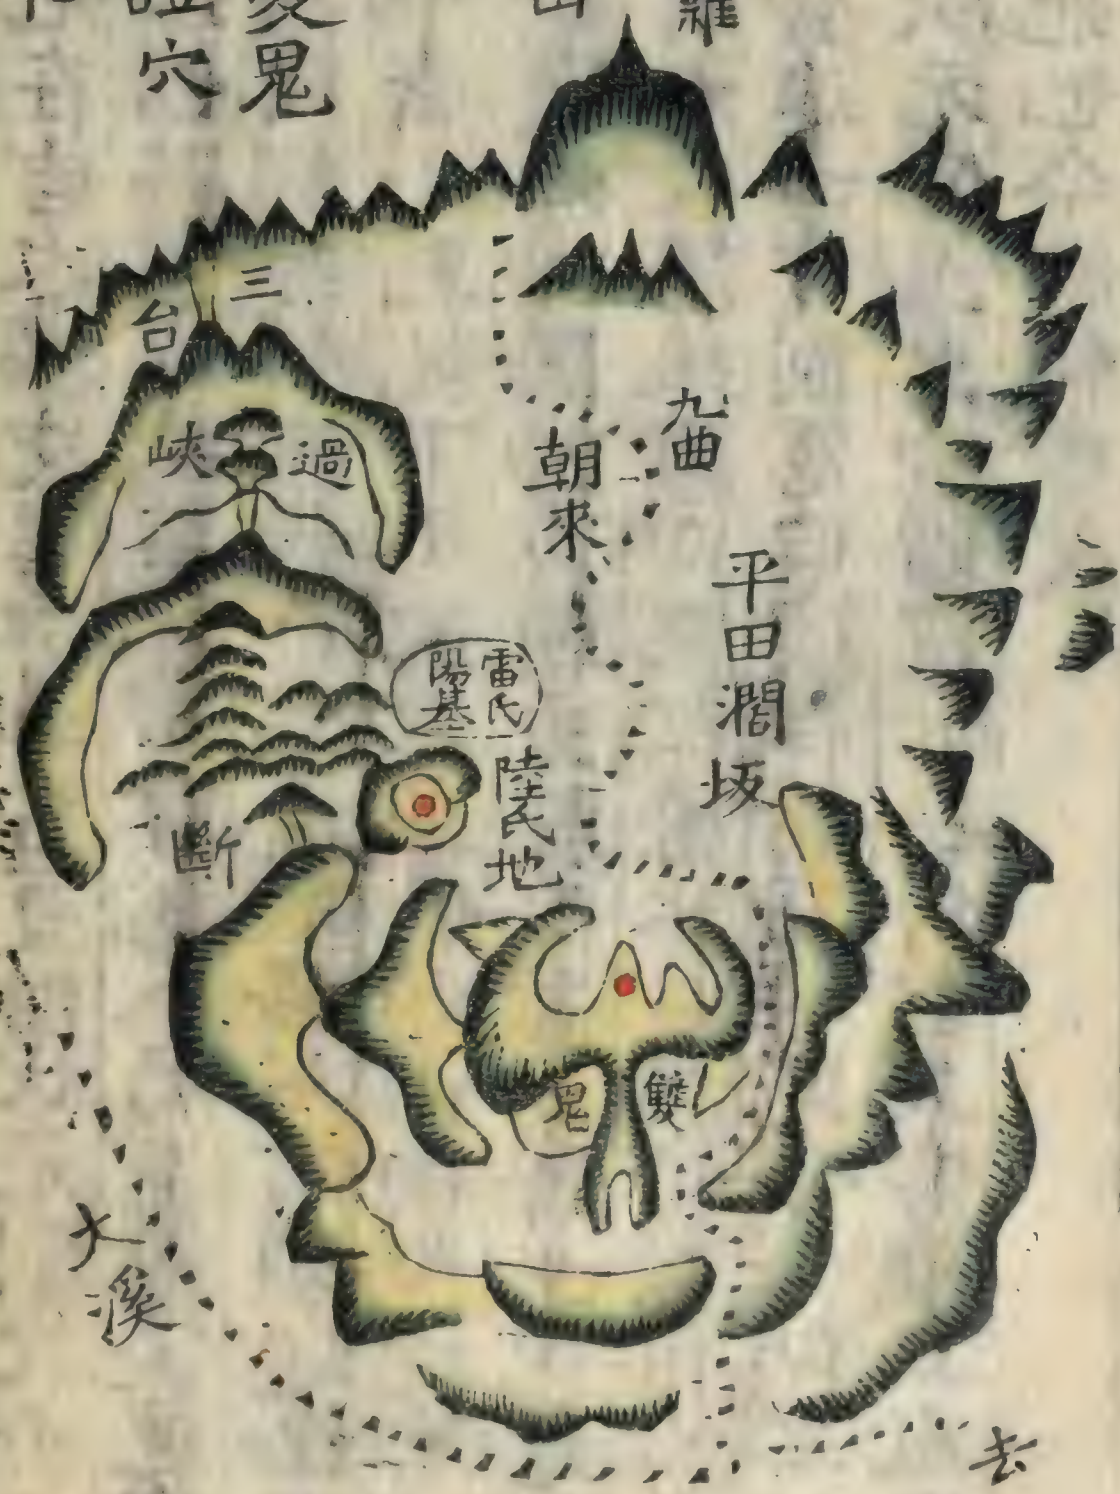 羅
鬼
穴
三台
過峽
九曲
朝來
平田濶坂
雷氏
陽基
陸氏地
斷
雙鬼
大溪
去